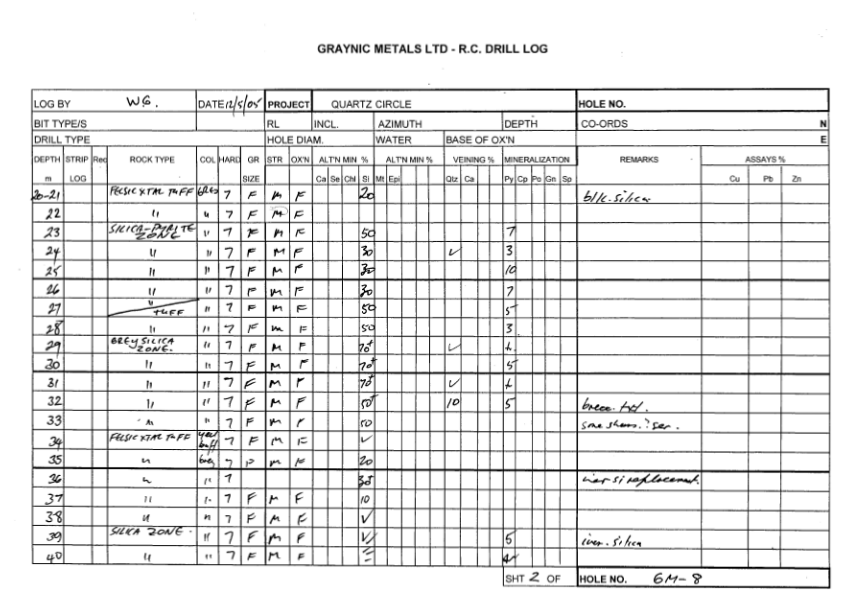 GRAYNIC METALS LTD - R.C. DRILL LOG
LOG BY WG. DATE 12/5/05 PROJECT QUARTZ CIRCLE HOLE NO.
BIT TYPE/S RL INCL. AZIMUTH DEPTH CO-ORDS N
DRILL TYPE HOLE DIAM. WATER BASE OF OX'N E
DEPTH STRIP Rec ROCK TYPE COL HARD GR STR OX'N ALT'N MIN % ALT'N MIN % VEINING % MINERALIZATION REMARKS ASSAYS %
m LOG SIZE Ca Se Chl Si Mt Epi Qtz Ca Py Cp Po Gn Sp Cu Pb Zn
20-21 FELSIC XTAL TUFF grey 7 F M F 20 blk. silica
22 " " 7 F M F
23 SILICA-PYRITE ZONE " 7 F M F 50 7
24 " " 7 F M F 30 ✓ 3
25 " " 7 F M F 30 10
26 " " 7 F M F 30 7
27 " TUFF " 7 F M F 50 5
28 " " 7 F M F 50 3
29 GREY SILICA ZONE. " 7 F M F 70+ ✓
30 " " 7 F M F 70+ 5
31 " " 7 F M F 70+ ✓
32 " " 7 F M F 50+ 10 5 brecc. txt.
33 " " 7 F M F 50 some shears. ? ser.
34 FELSIC XTAL TUFF buff 7 F M F ✓
35 " 7 F M F 20
36 " " 7 30+ si replacement
37 " " 7 F M F 10
38 " " 7 F M F ✓
39 SILICA ZONE. " 7 F M F 5 silica
40 " " 7 F M F
SHT 2 OF HOLE NO. GM-8